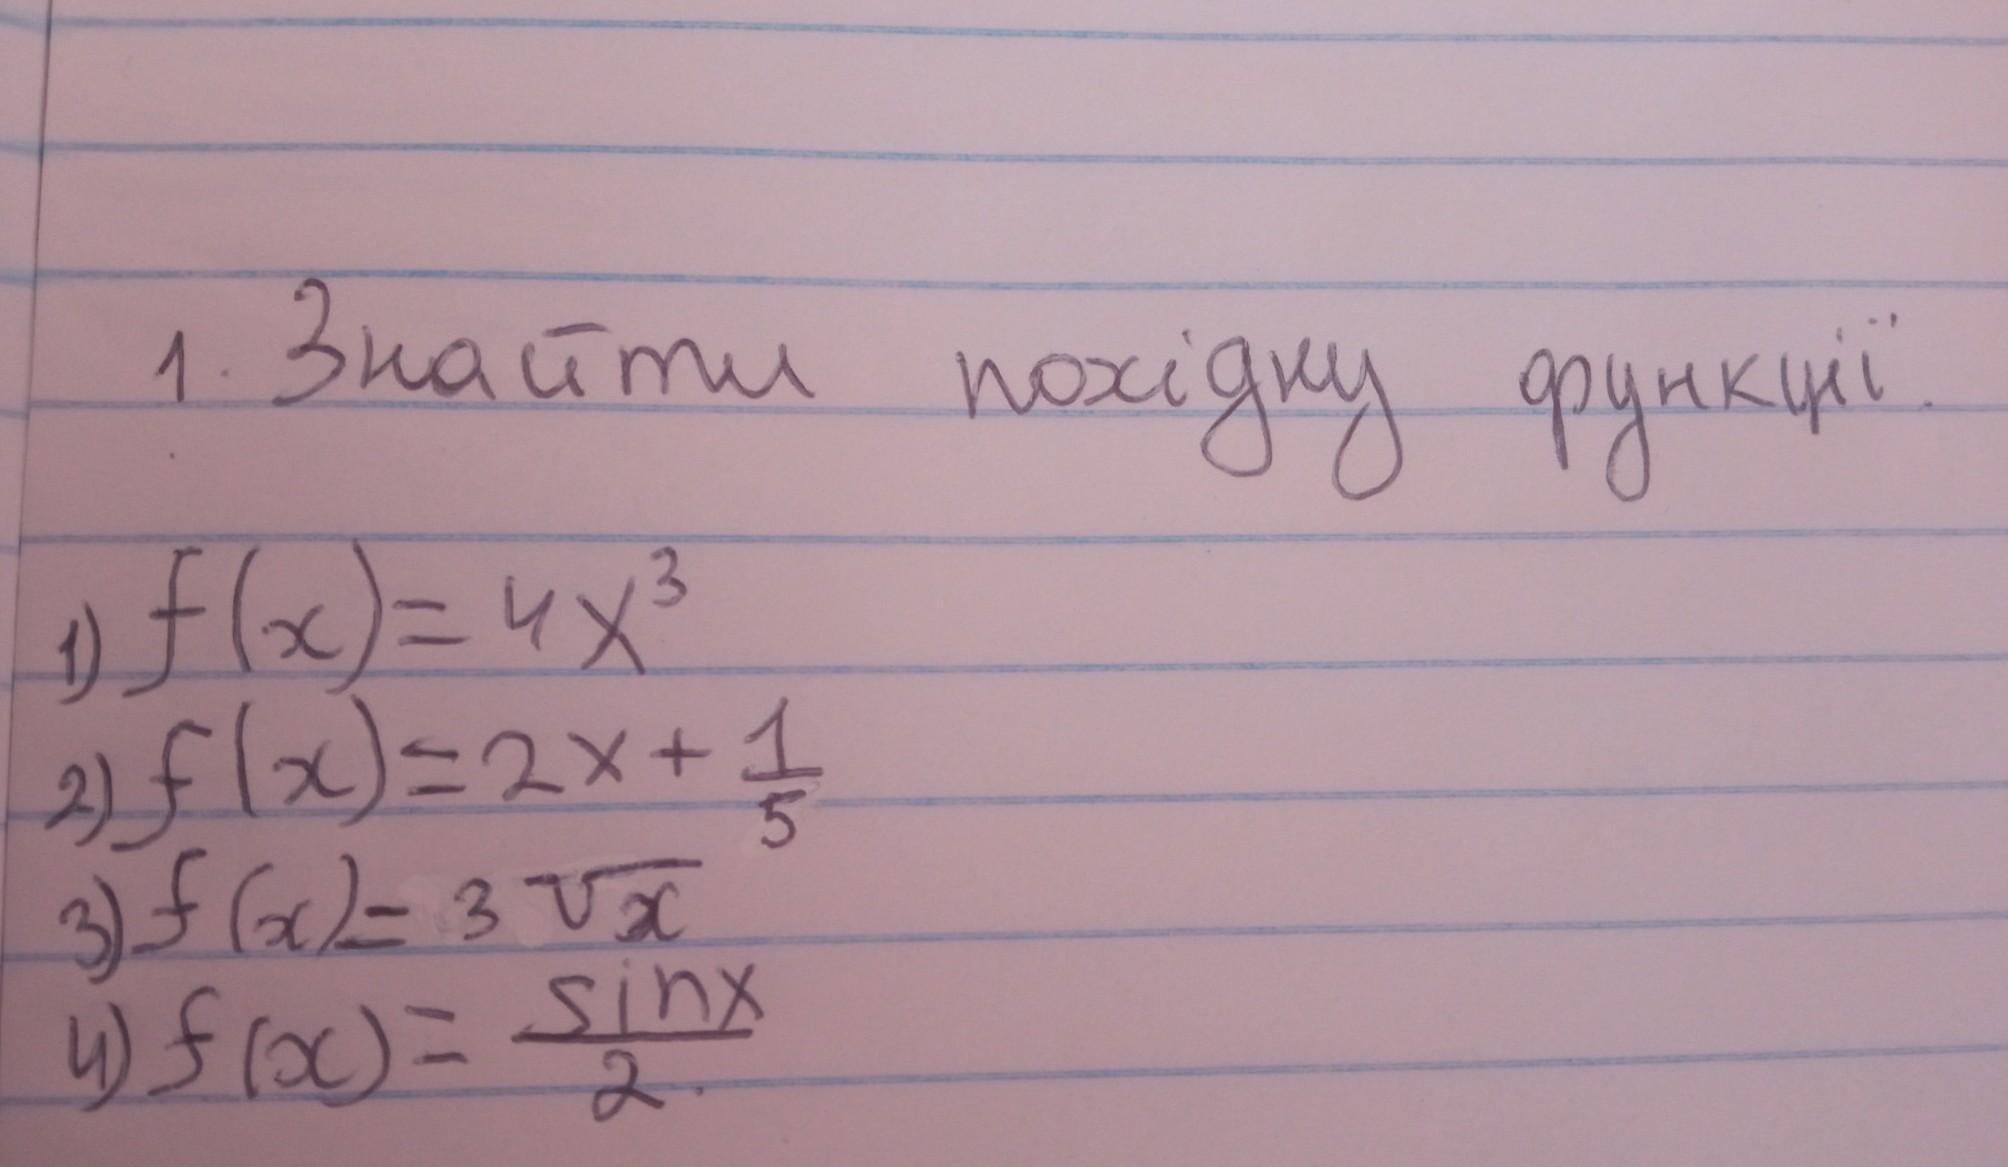 1. Знайти похідну функції.
1) f(x)=4x³
2) f(x)=2x+1/5
3) f(x)=3√x
4) f(x)=sinx/2.